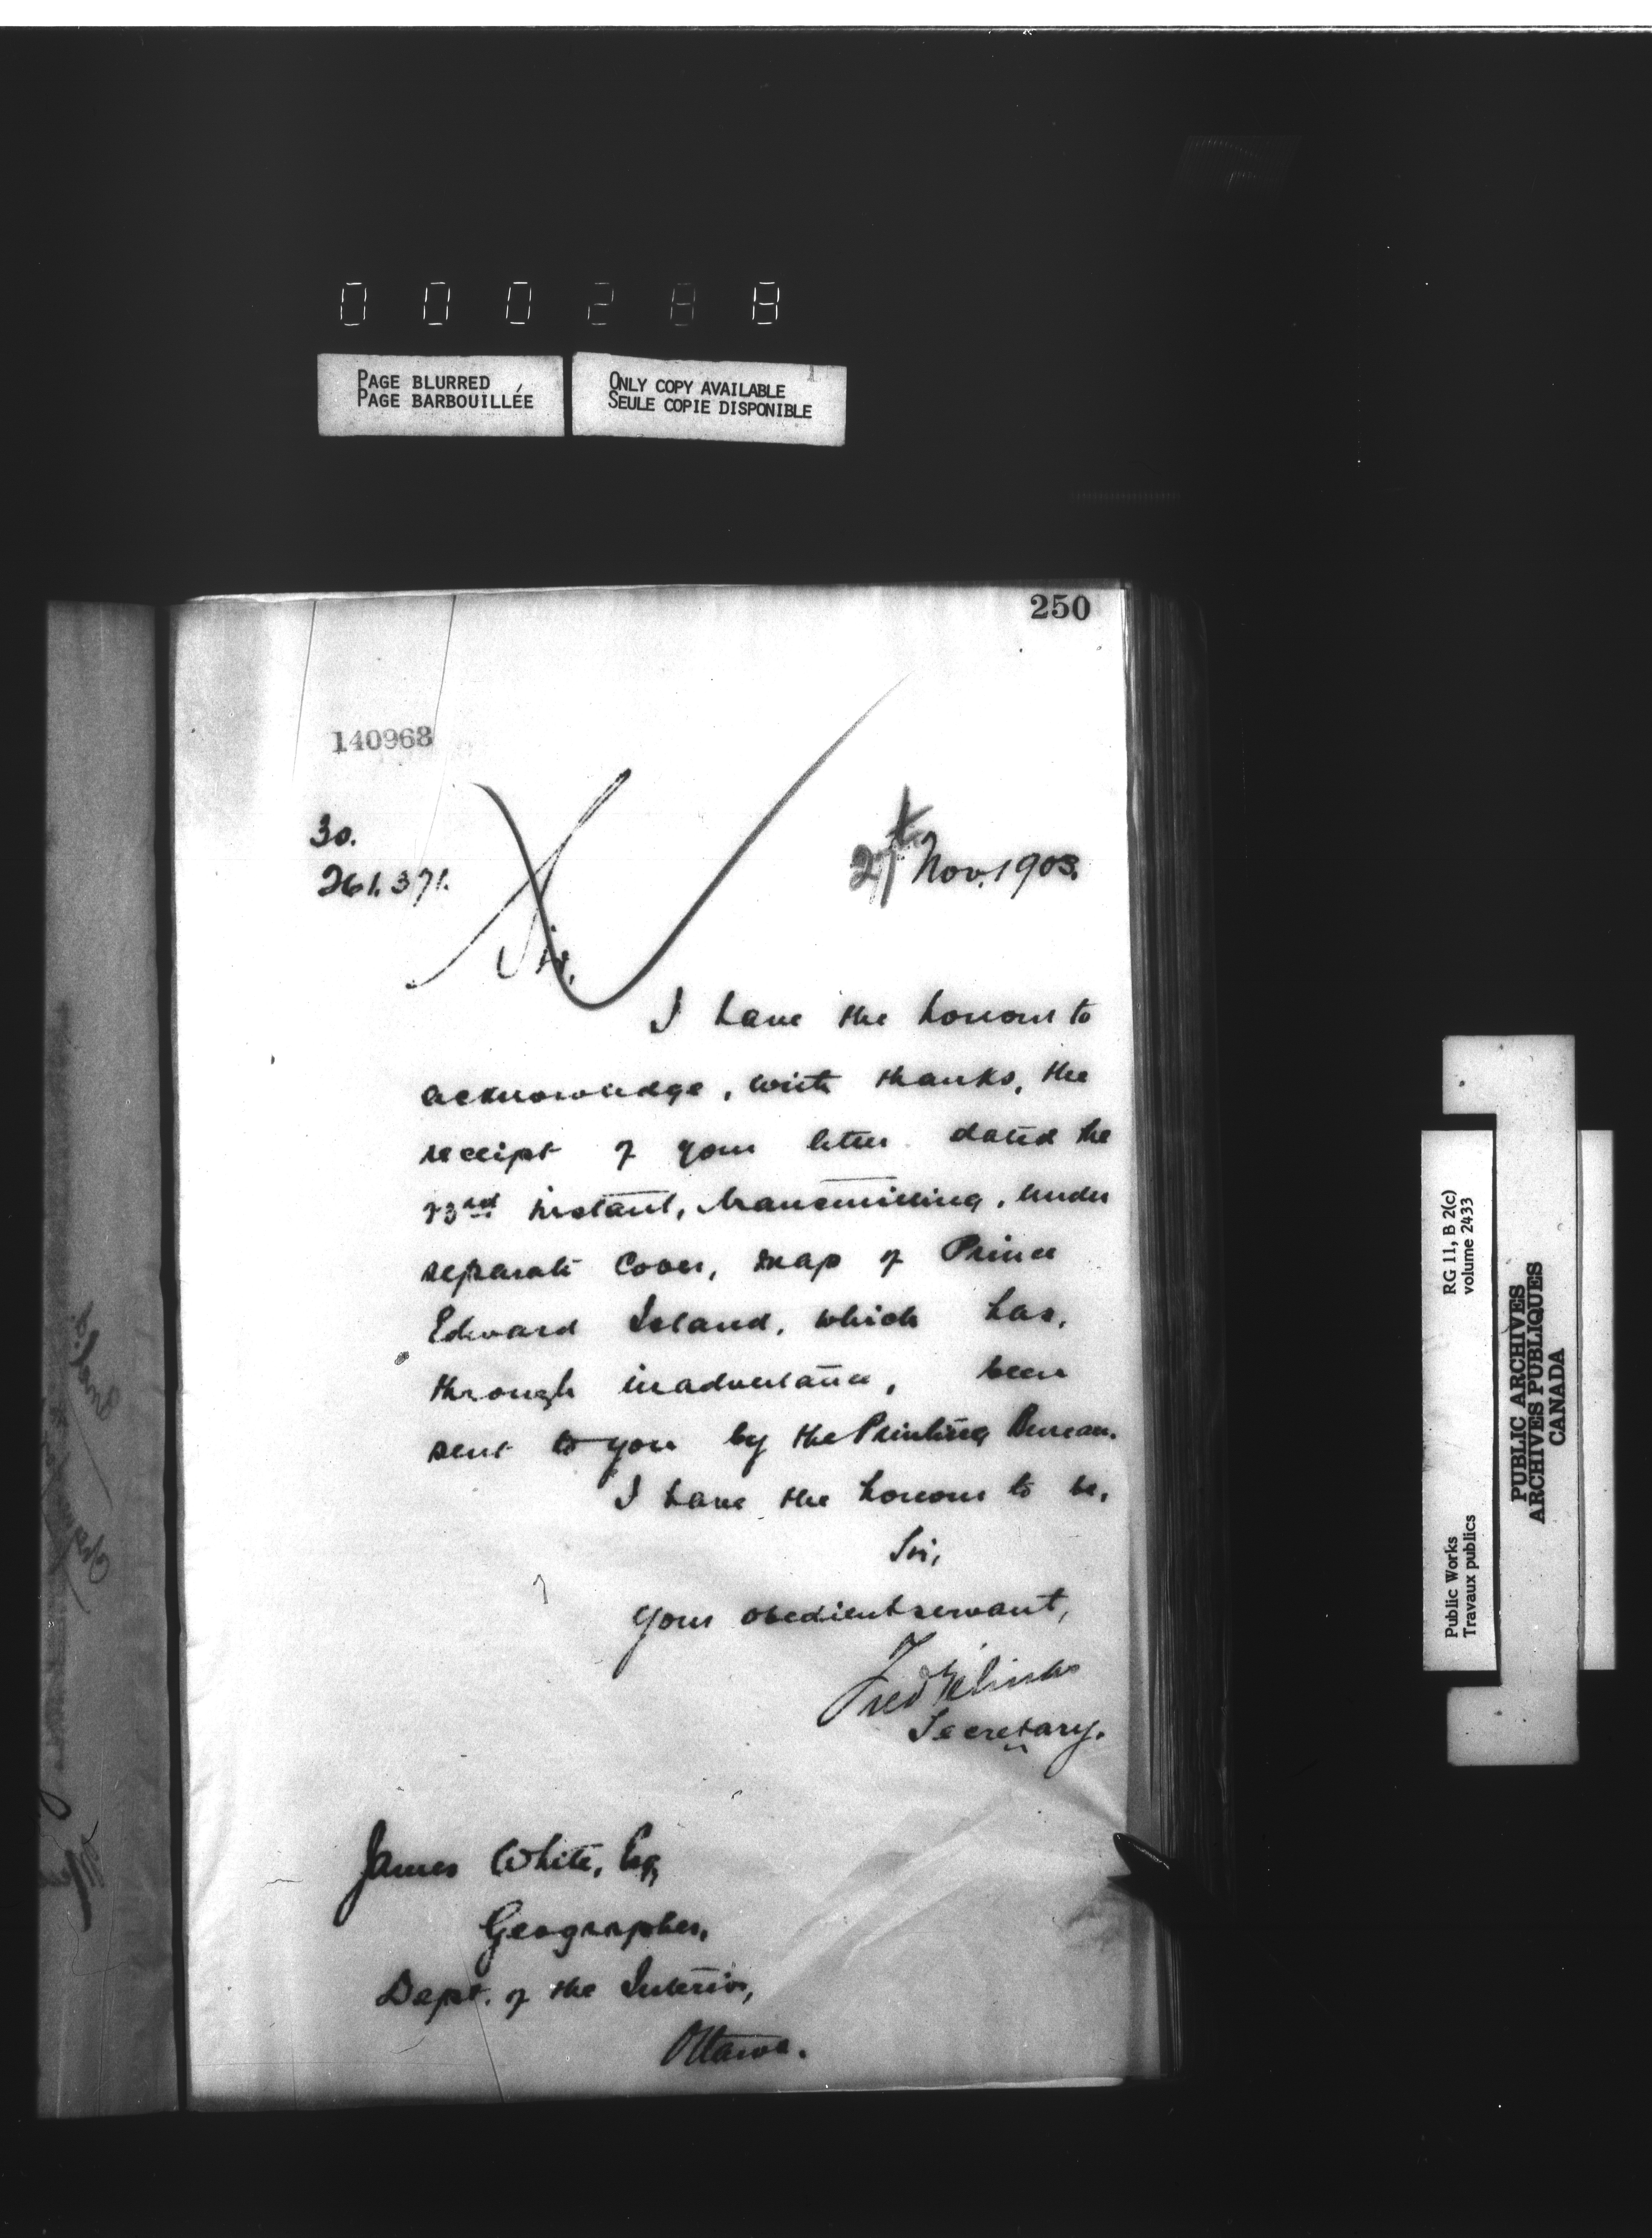 000288
PAGE BLURRED
PAGE BARBOUILLÉE
ONLY COPY AVAILABLE
SEULE COPIE DISPONIBLE
250
140968
30.
261.371.
27th Nov. 1903.
Sir,
I have the honour to
acknowledge, with thanks, the
receipt of your letter dated the
23rd instant, transmitting, under
separate cover, map of Prince
Edward Island, which has,
through inadvertance, been
sent to you by the Printing Bureau.
I have the honour to be,
Sir,
Your obedient servant,
Fred Gélinas
Secretary.
James White, Esq,
Geographer,
Dept. of the Interior,
Ottawa.
Public Works
Travaux publics
RG 11, B 2(c)
volume 2433
PUBLIC ARCHIVES
ARCHIVES PUBLIQUES
CANADA